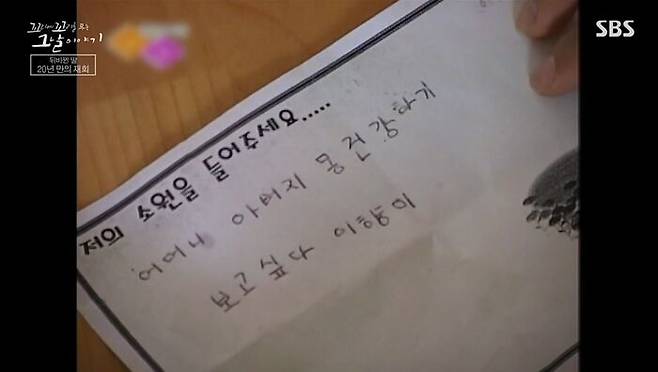 꼬리에 꼬리를 무는
그날 이야기
뒤바뀐 딸
20년 만의 재회
SBS
저의 소원을 들어주세요.....
어머니 아버지 몽 건강하기
보고싶다